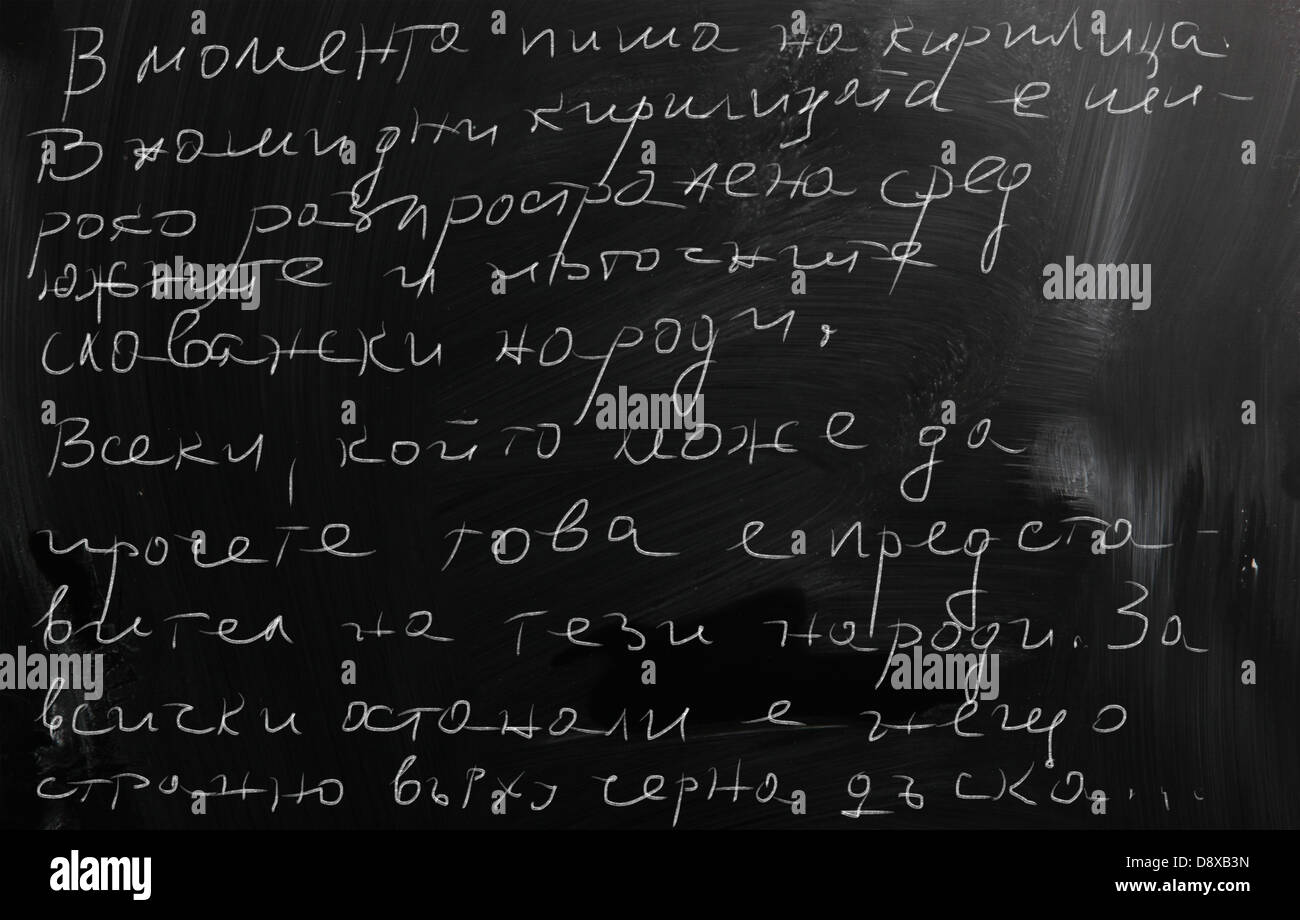 В момента пиша на кирилица.
В наши дни кирилицата е ши-
роко разпространена сред
южните и източните
славянски народи.
Всеки, който може да
прочете това е предста-
вител на тези народи. За
всички останали е нещо
странно върху черна дъска....
alamy
D8XB3N
www.alamy.com